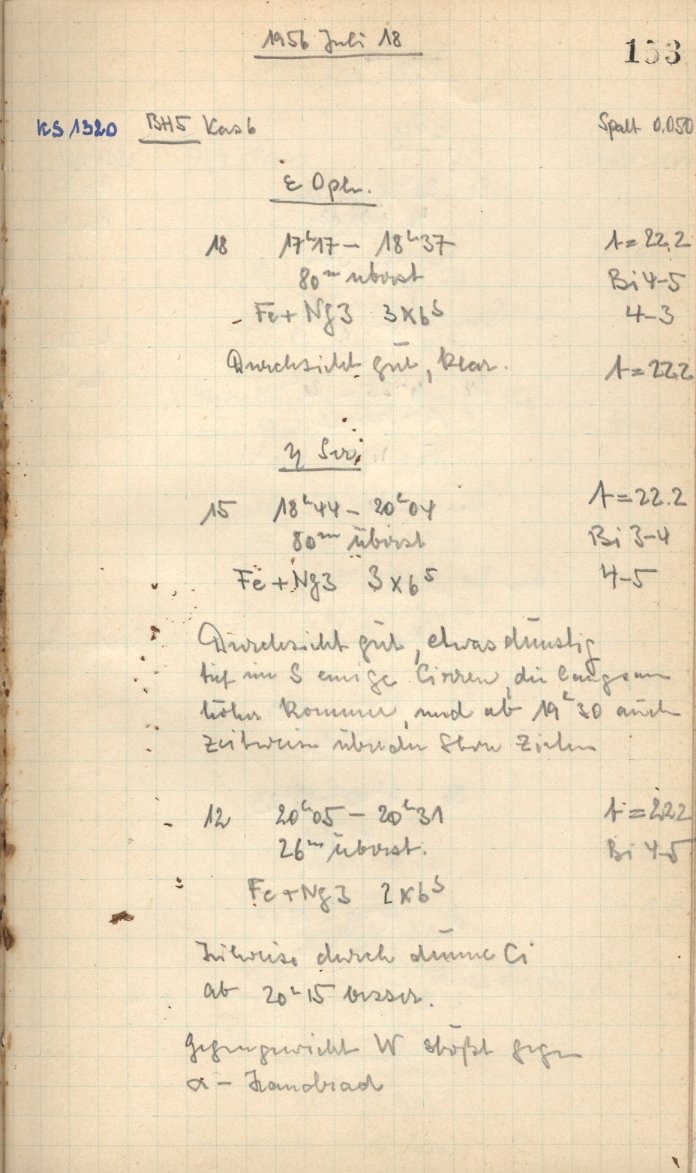 1956 Juli 18
153
KS 1320 BH5 Kas 6 Spalt 0.050
ε Oph.
18 17ʰ17 – 18ʰ37 A = 22.2
80ᵐ überst Bi 4-5
Fe + Ng3 3x6ˢ 4-3
Durchsicht gut, klar. A = 22.2
η Ser.
15 18ʰ44 – 20ʰ04 A = 22.2
80ᵐ überst Bi 3-4
Fe + Ng3 3x6ˢ 4-5
Durchsicht gut, etwas dunstig
tief im S einige Cirren, die langsam
höher kommen, und ab 19ʰ30 auch
zeitweise über den Stern ziehen
12 20ʰ05 – 20ʰ31 A = 22.2
26ᵐ überst. Bi 4-5
Fe + Ng3 2x6ˢ
Zeitweise durch dünne Ci
ab 20ʰ15 besser.
Gegengewicht W stößt gegen
α – Handrad